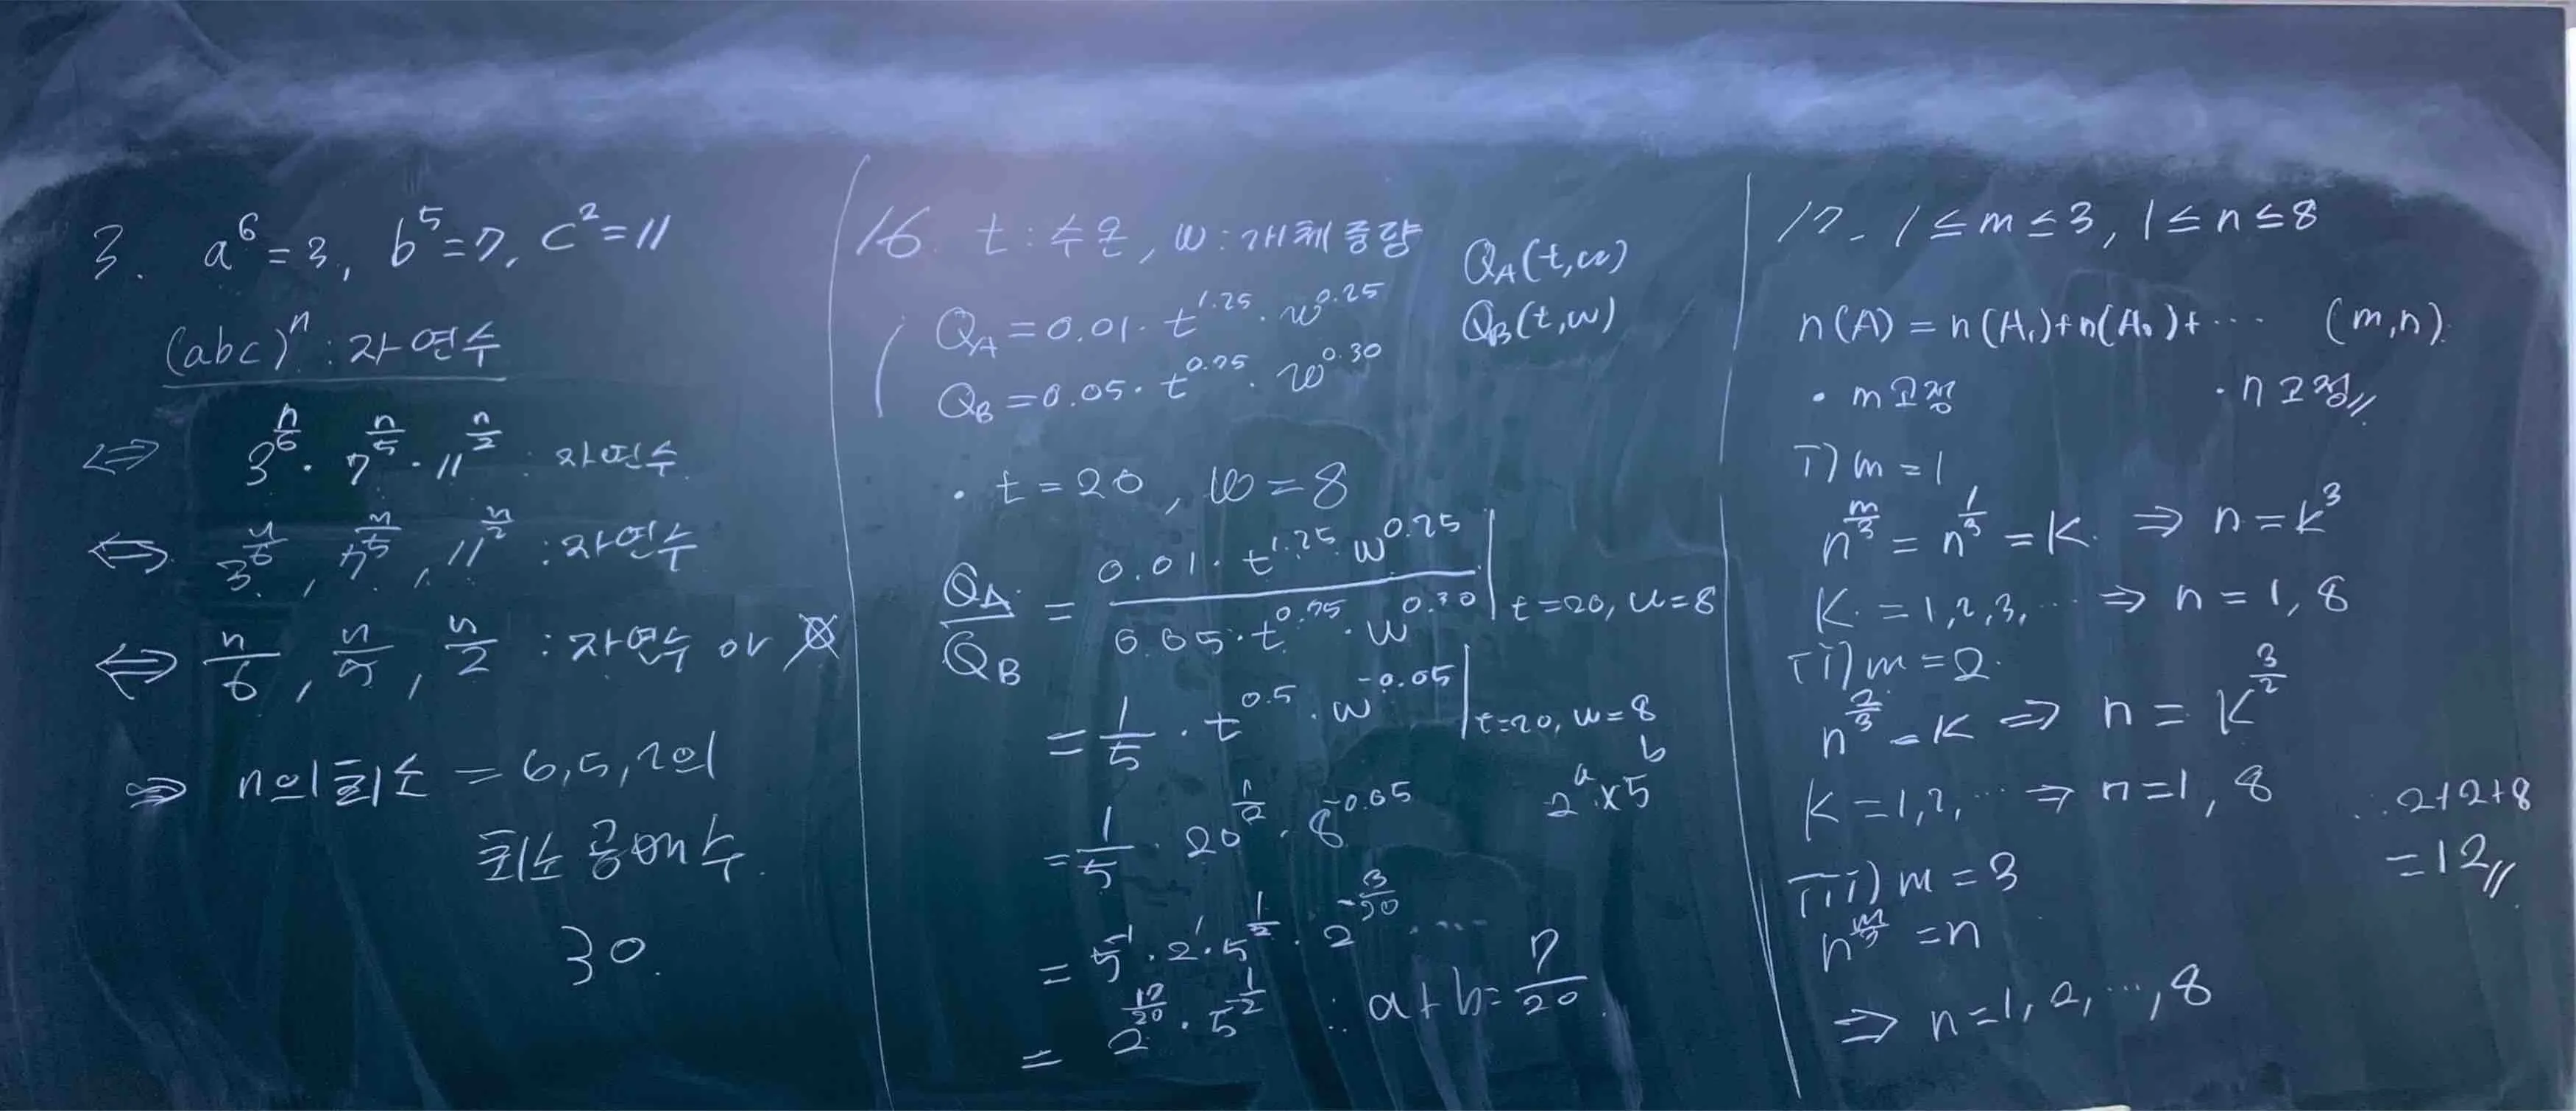 3. a^6 = 3, b^5 = 7, c^2 = 11
(abc)^n : 자연수
⇔ 3^(n/6) · 7^(n/5) · 11^(n/2) : 자연수
⇔ 3^(n/6), 7^(n/5), 11^(n/2) : 자연수
⇔ n/6, n/5, n/2 : 자연수 or
⇒ n의 최소 = 6, 5, 2의
최소공배수.
30.
16. t : 수온, w : 개체중량
Q_A(t,w)
Q_B(t,w)
Q_A = 0.01 · t^1.25 · w^0.25
Q_B = 0.05 · t^0.75 · w^0.30
· t = 20, w = 8
Q_A/Q_B = (0.01 · t^1.25 w^0.25)/(0.05 · t^0.75 · w^0.30) | t=20, w=8
= 1/5 · t^0.5 · w^-0.05 | t=20, w=8
2^a × 5^b
= 1/5 · 20^(1/2) · 8^-0.05
= 5^-1 · 2^1 · 5^(1/2) · 2^(-3/20) ....
= 2^(17/20) · 5^(-1/2) ∴ a+b = 7/20.
17. 1 ≤ m ≤ 3, 1 ≤ n ≤ 8
n(A) = n(A₁) + n(A₂) + ··· (m,n).
· m고정 · n고정//
i) m = 1
n^(m/3) = n^(1/3) = k. ⇒ n = k^3
k = 1, 2, 3, ··· ⇒ n = 1, 8
ii) m = 2.
n^(2/3) = k ⇒ n = k^(3/2)
k = 1, 2, ··· ⇒ n = 1, 8
∴ 2+2+8
= 12//
iii) m = 3
n^(m/3) = n
⇒ n = 1, 2, ···, 8